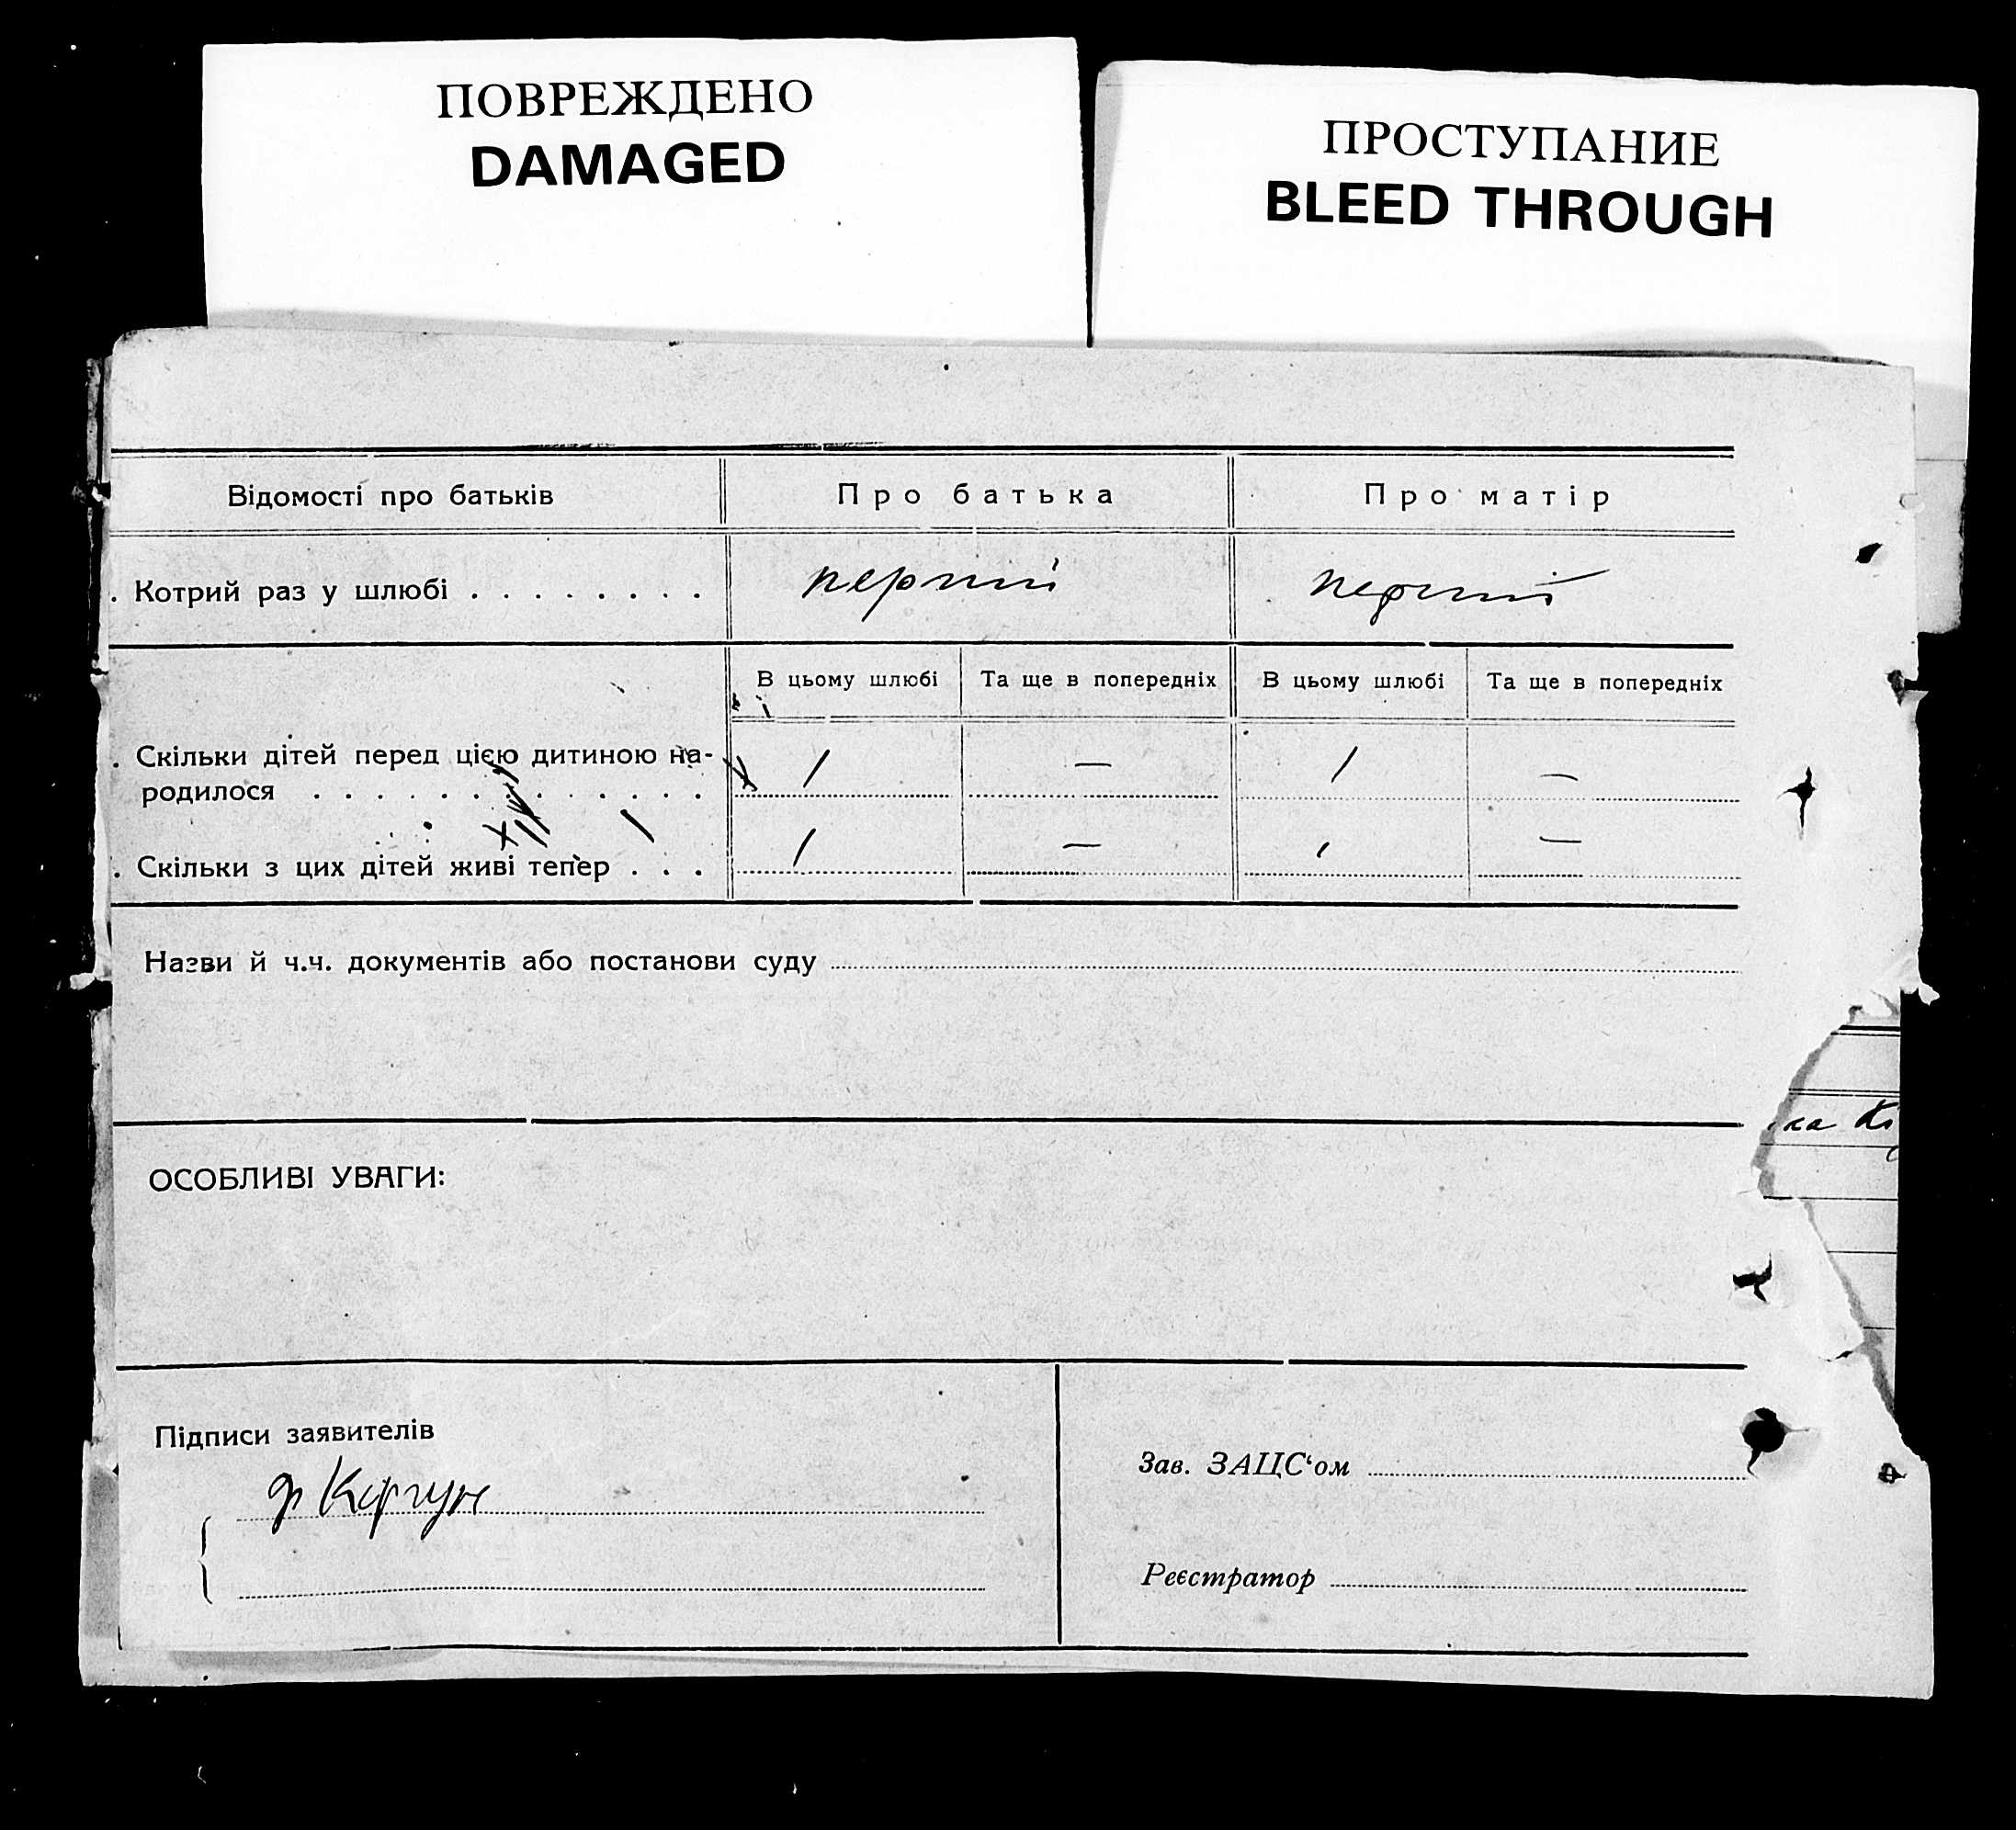 ПОВРЕЖДЕНО
DAMAGED
ПРОСТУПАНИЕ
BLEED THROUGH
Відомості про батьків
Про батька
Про матір
. Котрий раз у шлюбі . . . . . . . .
перший
перший
В цьому шлюбі
Та ще в попередніх
В цьому шлюбі
Та ще в попередніх
. Скільки дітей перед цією дитиною на-
родилося . . . . . . . . . . . . .
1
—
1
—
. Скільки з цих дітей живі тепер . . .
1
—
1
—
Назви й ч.ч. документів або постанови суду
ОСОБЛИВІ УВАГИ:
Підписи заявителів
Зав. ЗАЦС‘ом
Реєстратор